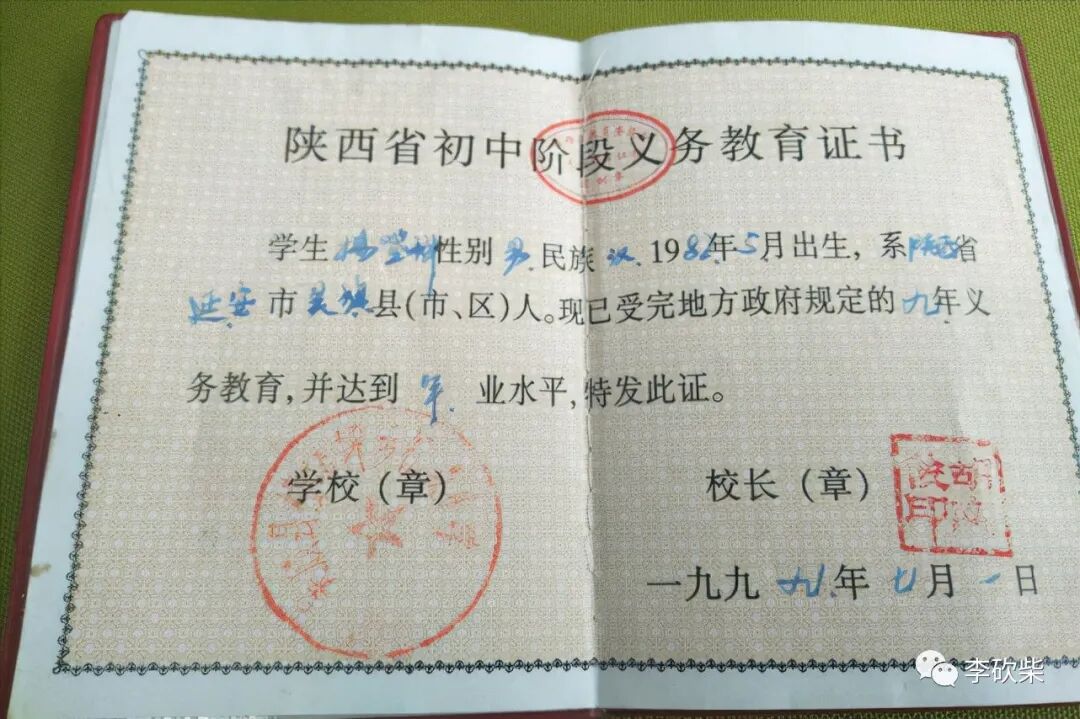 陕西省初中阶段义务教育证书
学生杨登科性别男.民族汉.1982年5月出生，系陕西省
延安市吴旗县(市、区)人。现已受完地方政府规定的九年义
务教育，并达到毕.业水平，特发此证。
学校（章） 校长（章）
印
一九九九.年七月一日
李砍柴